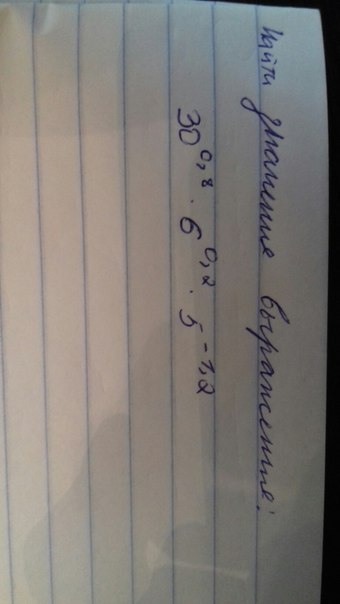 Найти значение выражения:
30^0,8 · 6^0,2 · 5^-1,2